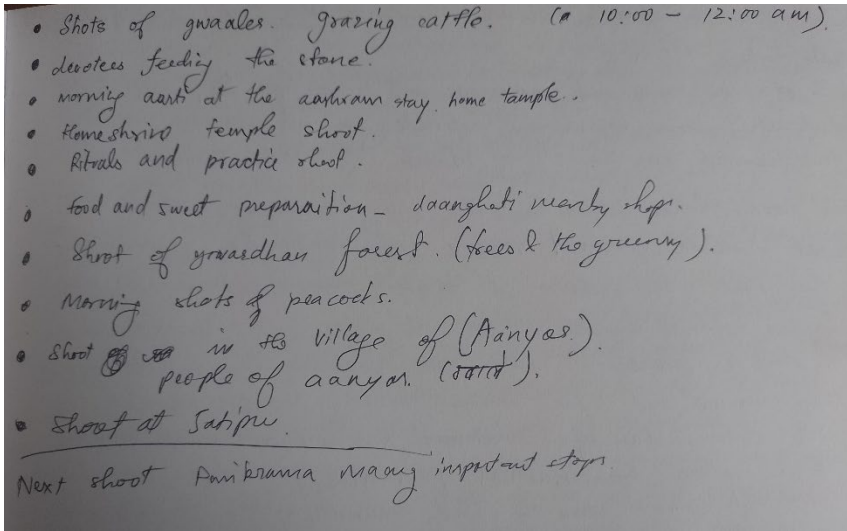 • Shots of gwaales. grazing cattle. (a 10:00 - 12:00 am).
• devotees feeding the stone.
• Morning aarti at the aashram stay home tample.
• Homeshrine temple shoot.
• Rituals and practice shoot.
• food and sweet preparaition - daanghati nearby shops.
• Shoot of gowardhan forest. (trees & the greenry).
• Morning shots of peacocks.
• Shoot in the village of (Aanyor).
people of aanyor.
• Shoot at Satipu
Next shoot Parikrama Maarg important stops.